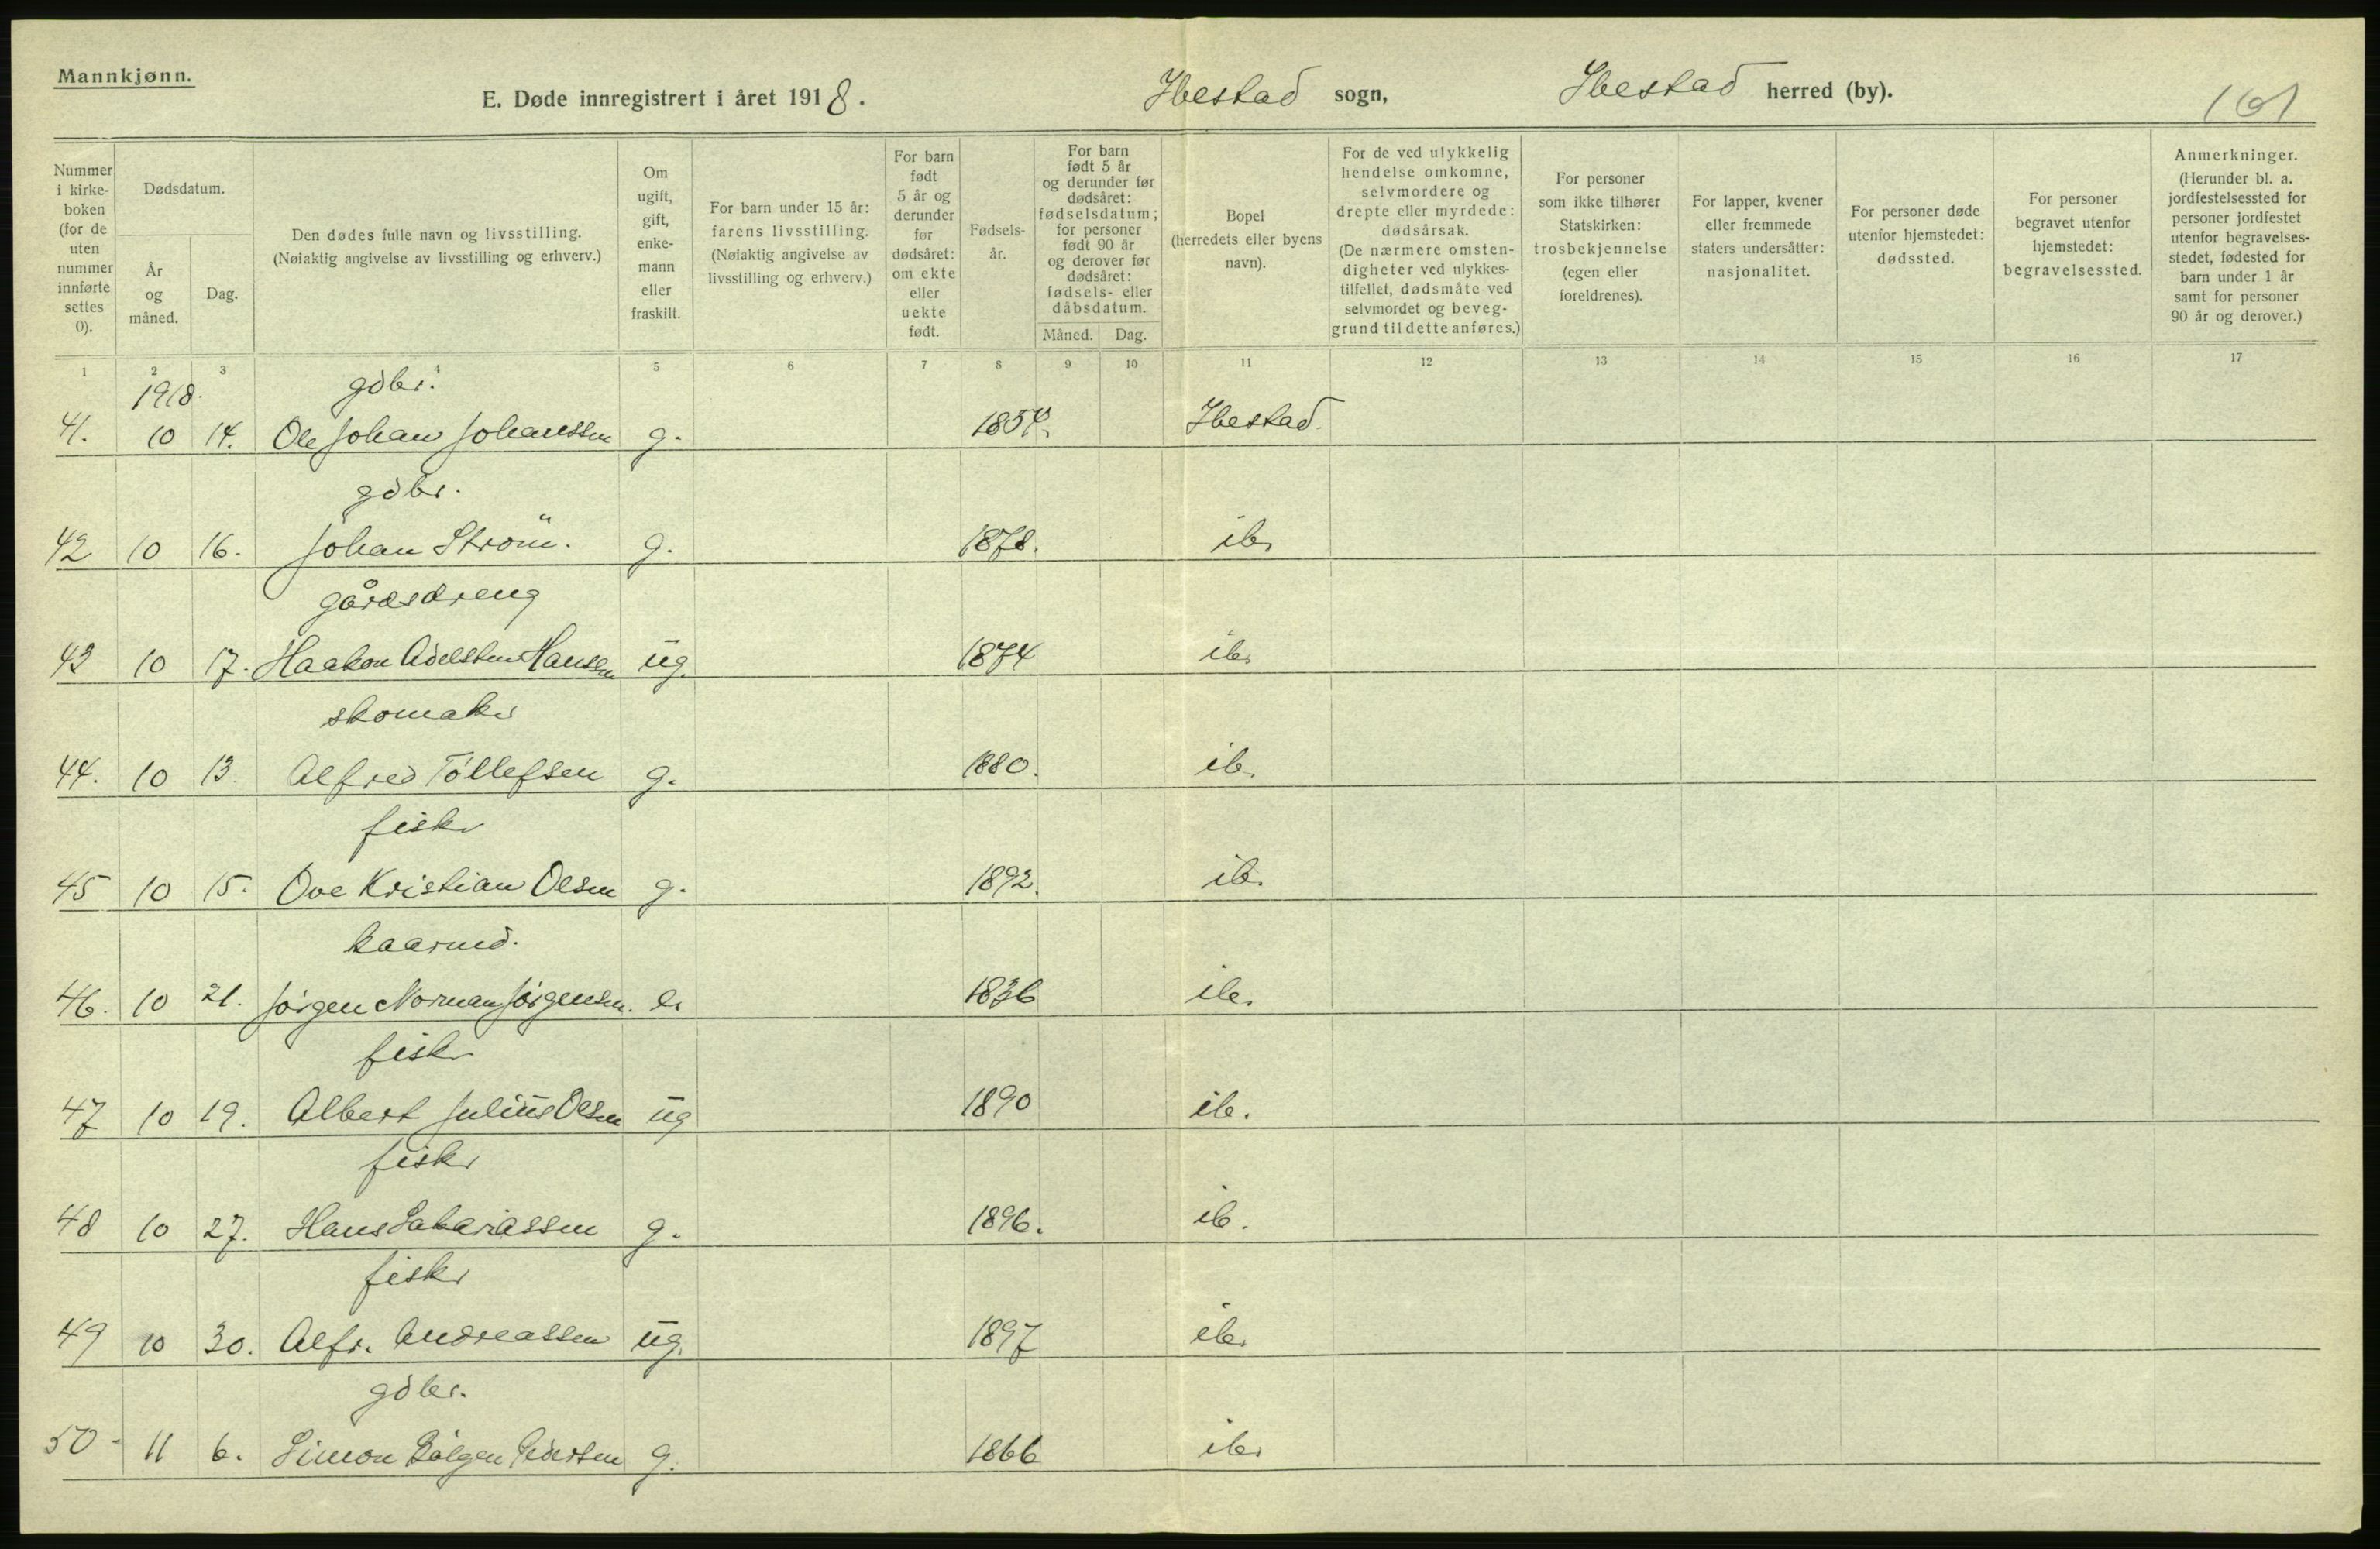 Mannkjønn.
E. Døde innregistrert i året 1918. Ibestad sogn, Ibestad herred (by). 101
Nummer i kirke-boken (for de uten nummer innførte settes 0).
Dødsdatum.
År og måned.
Dag.
Den dødes fulle navn og livsstilling.
(Nøiaktig angivelse av livsstilling og erhverv.)
Om ugift, gift, enke-mann eller fraskilt.
For barn under 15 år: farens livsstilling. (Nøiaktig angivelse av livsstilling og erhverv.)
For barn født 5 år og derunder før dødsåret: om ekte eller uekte født.
Fødsels-år.
For barn født 5 år og derunder før dødsåret: fødselsdatum; for personer født 90 år og derover før dødsåret: fødsels- eller dåbsdatum.
Måned. Dag.
Bopel (herredets eller byens navn).
For de ved ulykkelig hendelse omkomne, selvmordere og drepte eller myrdede: dødsårsak. (De nærmere omsten-digheter ved ulykkes-tilfellet, dødsmåte ved selvmordet og beveg-grund til dette anføres.)
For personer som ikke tilhører Statskirken: trosbekjennelse (egen eller foreldrenes).
For lapper, kvener eller fremmede staters undersåtter: nasjonalitet.
For personer døde utenfor hjemstedet: dødssted.
For personer begravet utenfor hjemstedet: begravelsessted.
Anmerkninger. (Herunder bl. a. jordfestelsessted for personer jordfestet utenfor begravelses-stedet, fødested for barn under 1 år samt for personer 90 år og derover.)
1 2 3 4 5 6 7 8 9 10 11 12 13 14 15 16 17
1918. gdbr.
41. 10 14. Ole Johan Johanssen g. 1854. Ibestad.
gdbr.
42 10 16. Johan Strøm. g. 1878. ib.
gårdsdreng
43 10 17. Haakon Adelsten Hansen ug. 1874 ib.
skomaker
44. 10 13. Alfred Tollefsen g. 1880. ib.
fisker
45 10 15. Ove Kristian Olsen g. 1892. ib.
kaarmd.
46. 10 21. Jørgen Norman Jørgensen. e. 1836 ib.
fisker
47 10 19. Albert Julius Olsen ug 1890 ib.
fisker
48 10 27. Hans Sakariassen g. 1896. ib.
fisker
49 10 30. Alfr. Andreassen ug. 1897 ib.
gdbr.
50 - 11 6. Simon g. 1866 ib.